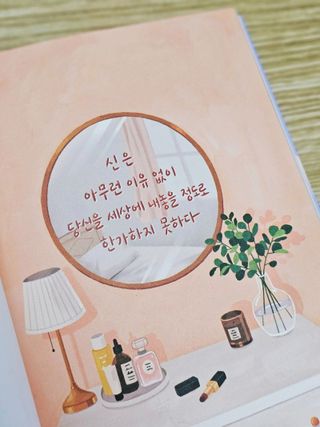 신은
아무런 이유 없이
당신을 세상에 내놓을 정도로
한가하지 못하다